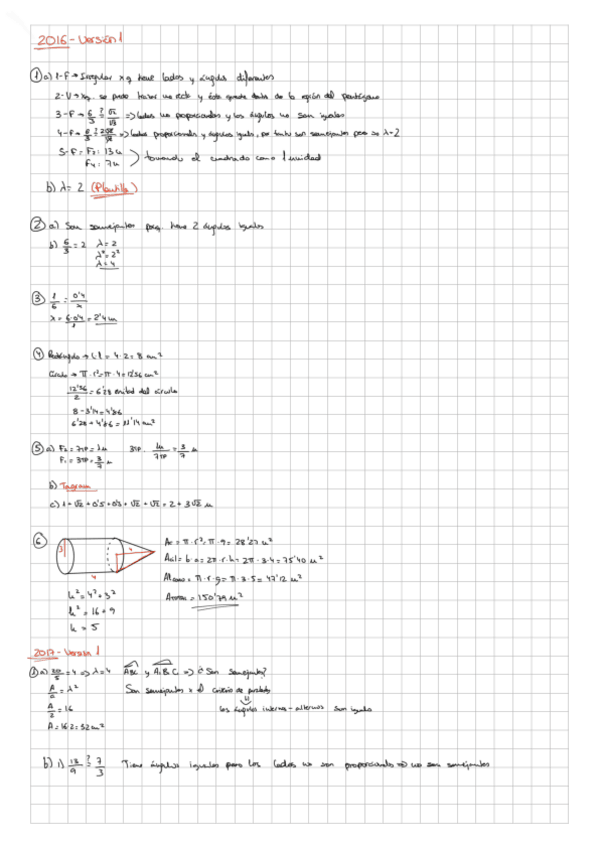 2016 - Versión 1
① a) 1-F → Irregular xq tiene lados y ángulos diferentes
2-V → xq. se puede trazar una recta y ésta queda dentro de la región del pentágono
3-F → 6/3 ?= √2/√3 => lados no proporcionales y los ángulos no son iguales
4-F → => lados proporcionales y ángulos iguales, por tanto son semejantes pero λ=2
5-F = F₂: 13u
F₄: 7u ) tomando el cuadrado como 1 unidad
b) λ = 2 (Plantilla)
② a) Son semejantes porq. tiene 2 ángulos iguales
b) 6/3 = 2 λ = 2
λ² = 2²
λ = 4
③ 1/6 = 0'4/x
x = 6·0'4/1 = 2'4 m
④ Rectángulo → l·l = 4·2 = 8 cm²
Círculo → π·r² = π·4 = 12'56 cm²
12'56/2 = 6'28 mitad del círculo
8 - 3'14 = 4'86
6'28 + 4'86 = 11'14 cm²
⑤ a) F₂ = 7TP = 1u 3TP · 1u/7TP = 3/7 u
F₁ = 3TP = 3/7 u
b) Tangram
c) 1 + √2 + 0'5 + 0'5 + √2 + √2 = 2 + 3√2 u
⑥ 3 4 4
Ac = π·r² = π·9 = 28'27 u²
Acil = b·a = 2π·r·h = 2π·3·4 = 75'40 u²
Alcono = π·r·g = π·3·5 = 47'12 u²
Atotal = 150'79 u²
h² = 4² + 3²
h² = 16 + 9
h = 5
2017 - Versión 1
① a) 20/5 = 4 => λ = 4 ABC y A₁B₁C => ¿Son semejantes?
A/a = λ² Son semejantes x el criterio de paralelas
A/2 = 16 los ángulos internos - alternos son iguales
A = 16·2 = 32 cm²
b) 1) 18/9 ?= 7/3 Tiene ángulos iguales pero los lados no son proporcionales => no son semejantes